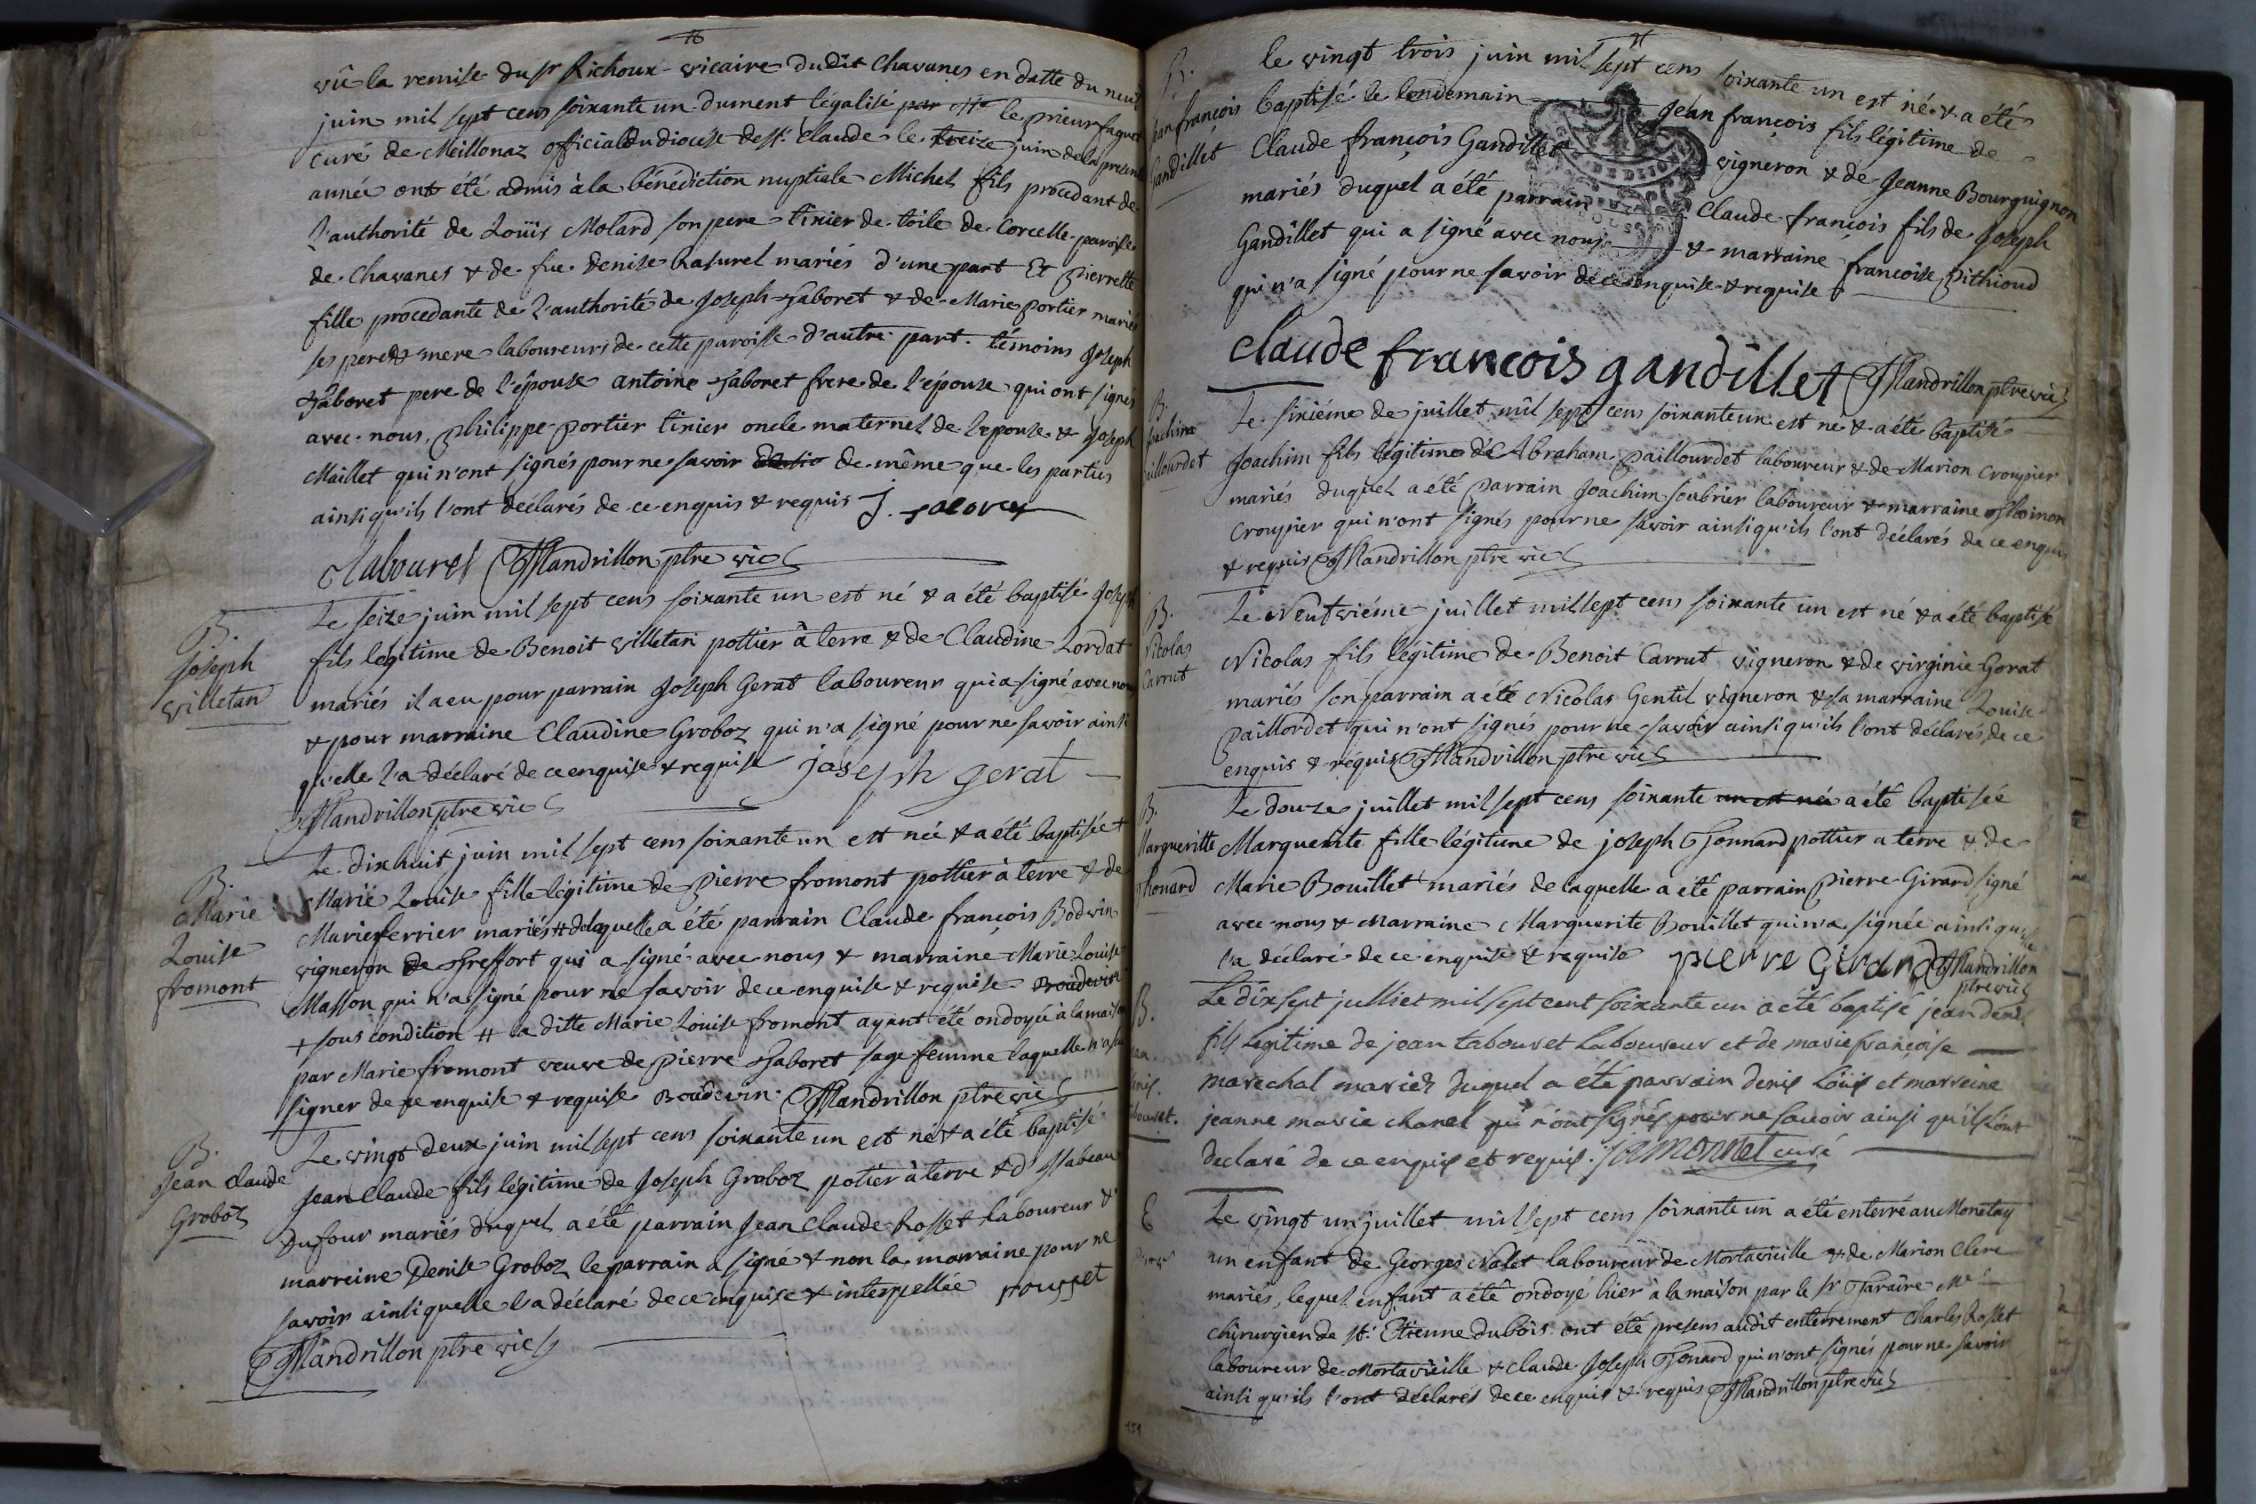 vû la remise du sr Richoux vicaire dudit Chavanes en datte du neuf
juin mil sept cens soixante un dument légalisé par le prieur
curé de Meillonaz official du diocese de st. Claude le treize juin de la presente
année ont été admis à la bénédiction nuptiale Michel fils procedant de
l'authorité de Loüis Molard son pere tixier de toile de Corcelle paroisse
de Chavanes & de fue denise mariés d'une part Et Pierrette
fille procedante de l'authorité de Joseph Taboret & de Marie portier mariés
ses pere & mere laboureurs de cette paroisse d'autre part. témoins Joseph
Taboret pere de l'épouse antoine Taboret frere de l'épouse qui ont signés
avec nous, philippe portier tixier oncle maternel de l'epouse & Joseph
Maillet qui n'ont signés pour ne savoir de même que les parties
ainsi qu'ils l'ont déclarés de ce enquis & requis J.
Mandrillon ptre vic
B.
Joseph
villetan
Le seize juin mil sept cens soixante un est né & a été baptisé Joseph
fils légitime de Benoit villetan pottier à terre & de Claudine Lordat
mariés il a eu pour parrain Joseph Gerat laboureur qui a signé avec nous
& pour marraine Claudine Groboz qui n'a signé pour ne savoir ainsi
qu'elle l'a déclaré de ce enquise & requise joseph gerat
Mandrillon ptre vic
B.
Marie
Louise
fromont
Le dix huit juin mil sept cens soixante un est née & a été baptisée +
Marie Louise fille légitime de Pierre fromont pottier à terre & de
Marie ferrier mariés # de laquelle a été parrain Claude françois Bodvin
vigneron de Treffort qui a signé avec nous & marraine Marie Louise
Masson qui n'a signé pour ne savoir de ce enquise & requise
+ sous condition # la ditte Marie Louise fromont ayant été ondoyée à la maison
par Marie fromont veuve de pierre Taboret sage femme laquelle n'a su
signer de ce enquise & requise Boudevin. Mandrillon ptre vic
B.
Jean Claude
Groboz
Le vingt deux juin mil sept cens soixante un est né & a été baptisé
Jean Claude fils légitime de Joseph Groboz potier à terre & d'Isabeau
Dufour mariés duquel a été parrain Jean Claude Rosset laboureur &
marreine Denise Groboz le parrain a signé & non la marraine pour ne
savoir ainsi quelle l'a déclaré de ce enquise & interpellée rousset
Mandrillon ptre vic
B.
Jean françois
Gandillet
le vingt trois juin mil sept cens soixante un est né & a été
baptisé le lendemain Jean françois fils légitime de
Claude françois Gandillet vigneron & de Jeanne Bourguignon
mariés duquel a été parrain Claude françois fils de Joseph
Gandillet qui a signé avec nous & marraine françoise Pithioud
qui n'a signé pour ne savoir de ce enquise & requise
claude francois gandillet Mandrillon ptre vic
B.
Joachim
Paillourdet
Le sixiéme de juillet mil sept cens soixante un est né & a été baptisé
Joachim fils légitime de Abraham Paillourdet laboureur & de Marion Croupier
mariés duquel a été parrain Joachim Soubrier laboureur & marraine
Croupier qui n'ont signés pour ne savoir ainsi qu'ils l'ont déclarés de ce enquis
& requis Mandrillon ptre vic
B.
Nicolas
Carrut
Le Neufviéme juillet mil sept cens soixante un est né & a été baptisé
Nicolas fils légitime de Benoit Carrut vigneron & de virginie Gorat
mariés son parrain a été Nicolas Gentil vigneron & sa marraine Louise
Paillordet qui n'ont signés pour ne savoir ainsi qu'ils l'ont déclarés de ce
enquis & requis Mandrillon ptre vic
B.
Margueritte
Thonard
Le douze juillet mil sept cens soixante un est née a été baptisée
Marguerite fille légitime de joseph Thonnard pottier a terre & de
Marie Bouillet mariés de laquelle a été parrain Pierre Girard signé
avec nous & marraine Marguerite Bouillet qui n'a signée ainsi quelle
l'a déclaré de ce enquise & requise pierre Girard Mandrillon
ptre vic
B.
Jean
denis
tabouret.
Le dix sept julliet mil sept cent soixante un a été baptisé jean denis
fils legitime de jean tabouret Laboureur et de marie françoise
marechal mariez duquel a été parrain denis Loüis et marreine
jeanne marie chanel qui n'ont signés pour ne sauoir ainsi qu'ils l'ont
declaré de ce enquis et requis. Jamonnet curé
E
Le vingt un juillet mil sept cens soixante un a été enterré au Monetay
un enfant de Georges Nalet laboureur de Mortavieille & de Marion Clere
mariés, lequel enfant a été ondoyé hier à la maison par le sr Taraire Me
chirurgien de st. Etienne dubois ont été presens audit enterrement Charles Rosset
laboureur de Mortavieille & Claude Joseph Thonard qui n'ont signés pour ne savoir
ainsi qu'ils l'ont déclarés de ce enquis & requis Mandrillon ptre vic